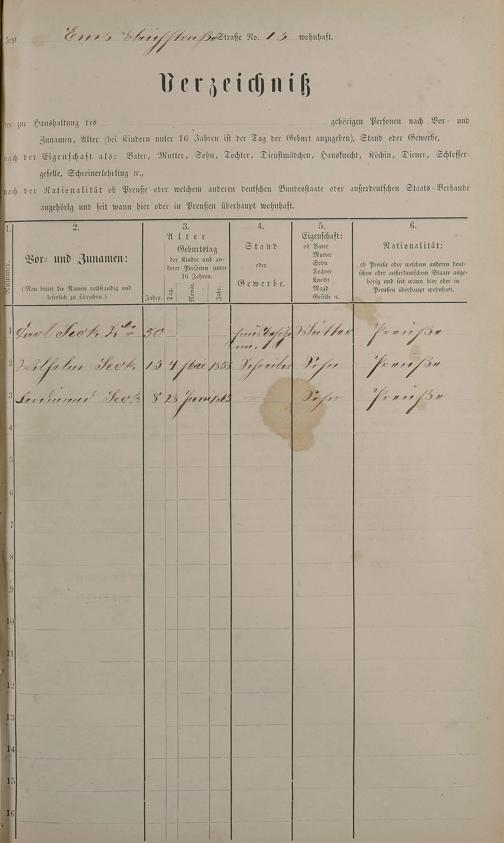 Jetzt Straße No. 13 wohnhaft.
Verzeichniß
der zur Haushaltung des gehörigen Personen nach Vor- und
Zunamen, Alter (bei Kindern unter 16 Jahren ist der Tag der Geburt anzugeben), Stand oder Gewerbe,
nach der Eigenschaft als: Vater, Mutter, Sohn, Tochter, Dienstmädchen, Hausknecht, Köchin, Diener, Schlosser-
geselle, Schreinerlehrling ꝛc.,
nach der Nationalität ob Preuße oder welchem anderen deutschen Bundesstaate oder außerdeutschen Staats-Verbande
angehörig und seit wann hier oder in Preußen überhaupt wohnhaft.
1. 2. 3. 4. 5. 6.
Nummer.
Vor- und Zunamen:
(Man bittet die Namen vollständig und
leserlich zu schreiben.)
Alter
Geburtstag
der Kinder und an-
derer Personen unter
16 Jahren.
Jahre. Tag. Monat. Jahr.
Stand
oder
Gewerbe.
Eigenschaft:
ob Vater
Mutter
Sohn
Tochter
Knecht
Magd
Geselle ꝛc.
Nationalität:
ob Preuße oder welchem anderen deut-
schen oder außerdeutschen Staate ange-
hörig und seit wann hier oder in
Preußen überhaupt wohnhaft.
1 Carl 50 Mutter Preuße
2 Wilhelm 13 4 Mai 1855 Schreiber Sohn Preuße
3 Ferdinand 8 23 Juni Sohn Preuße
4
5
6
7
8
9
10
11
12
13
14
15
16